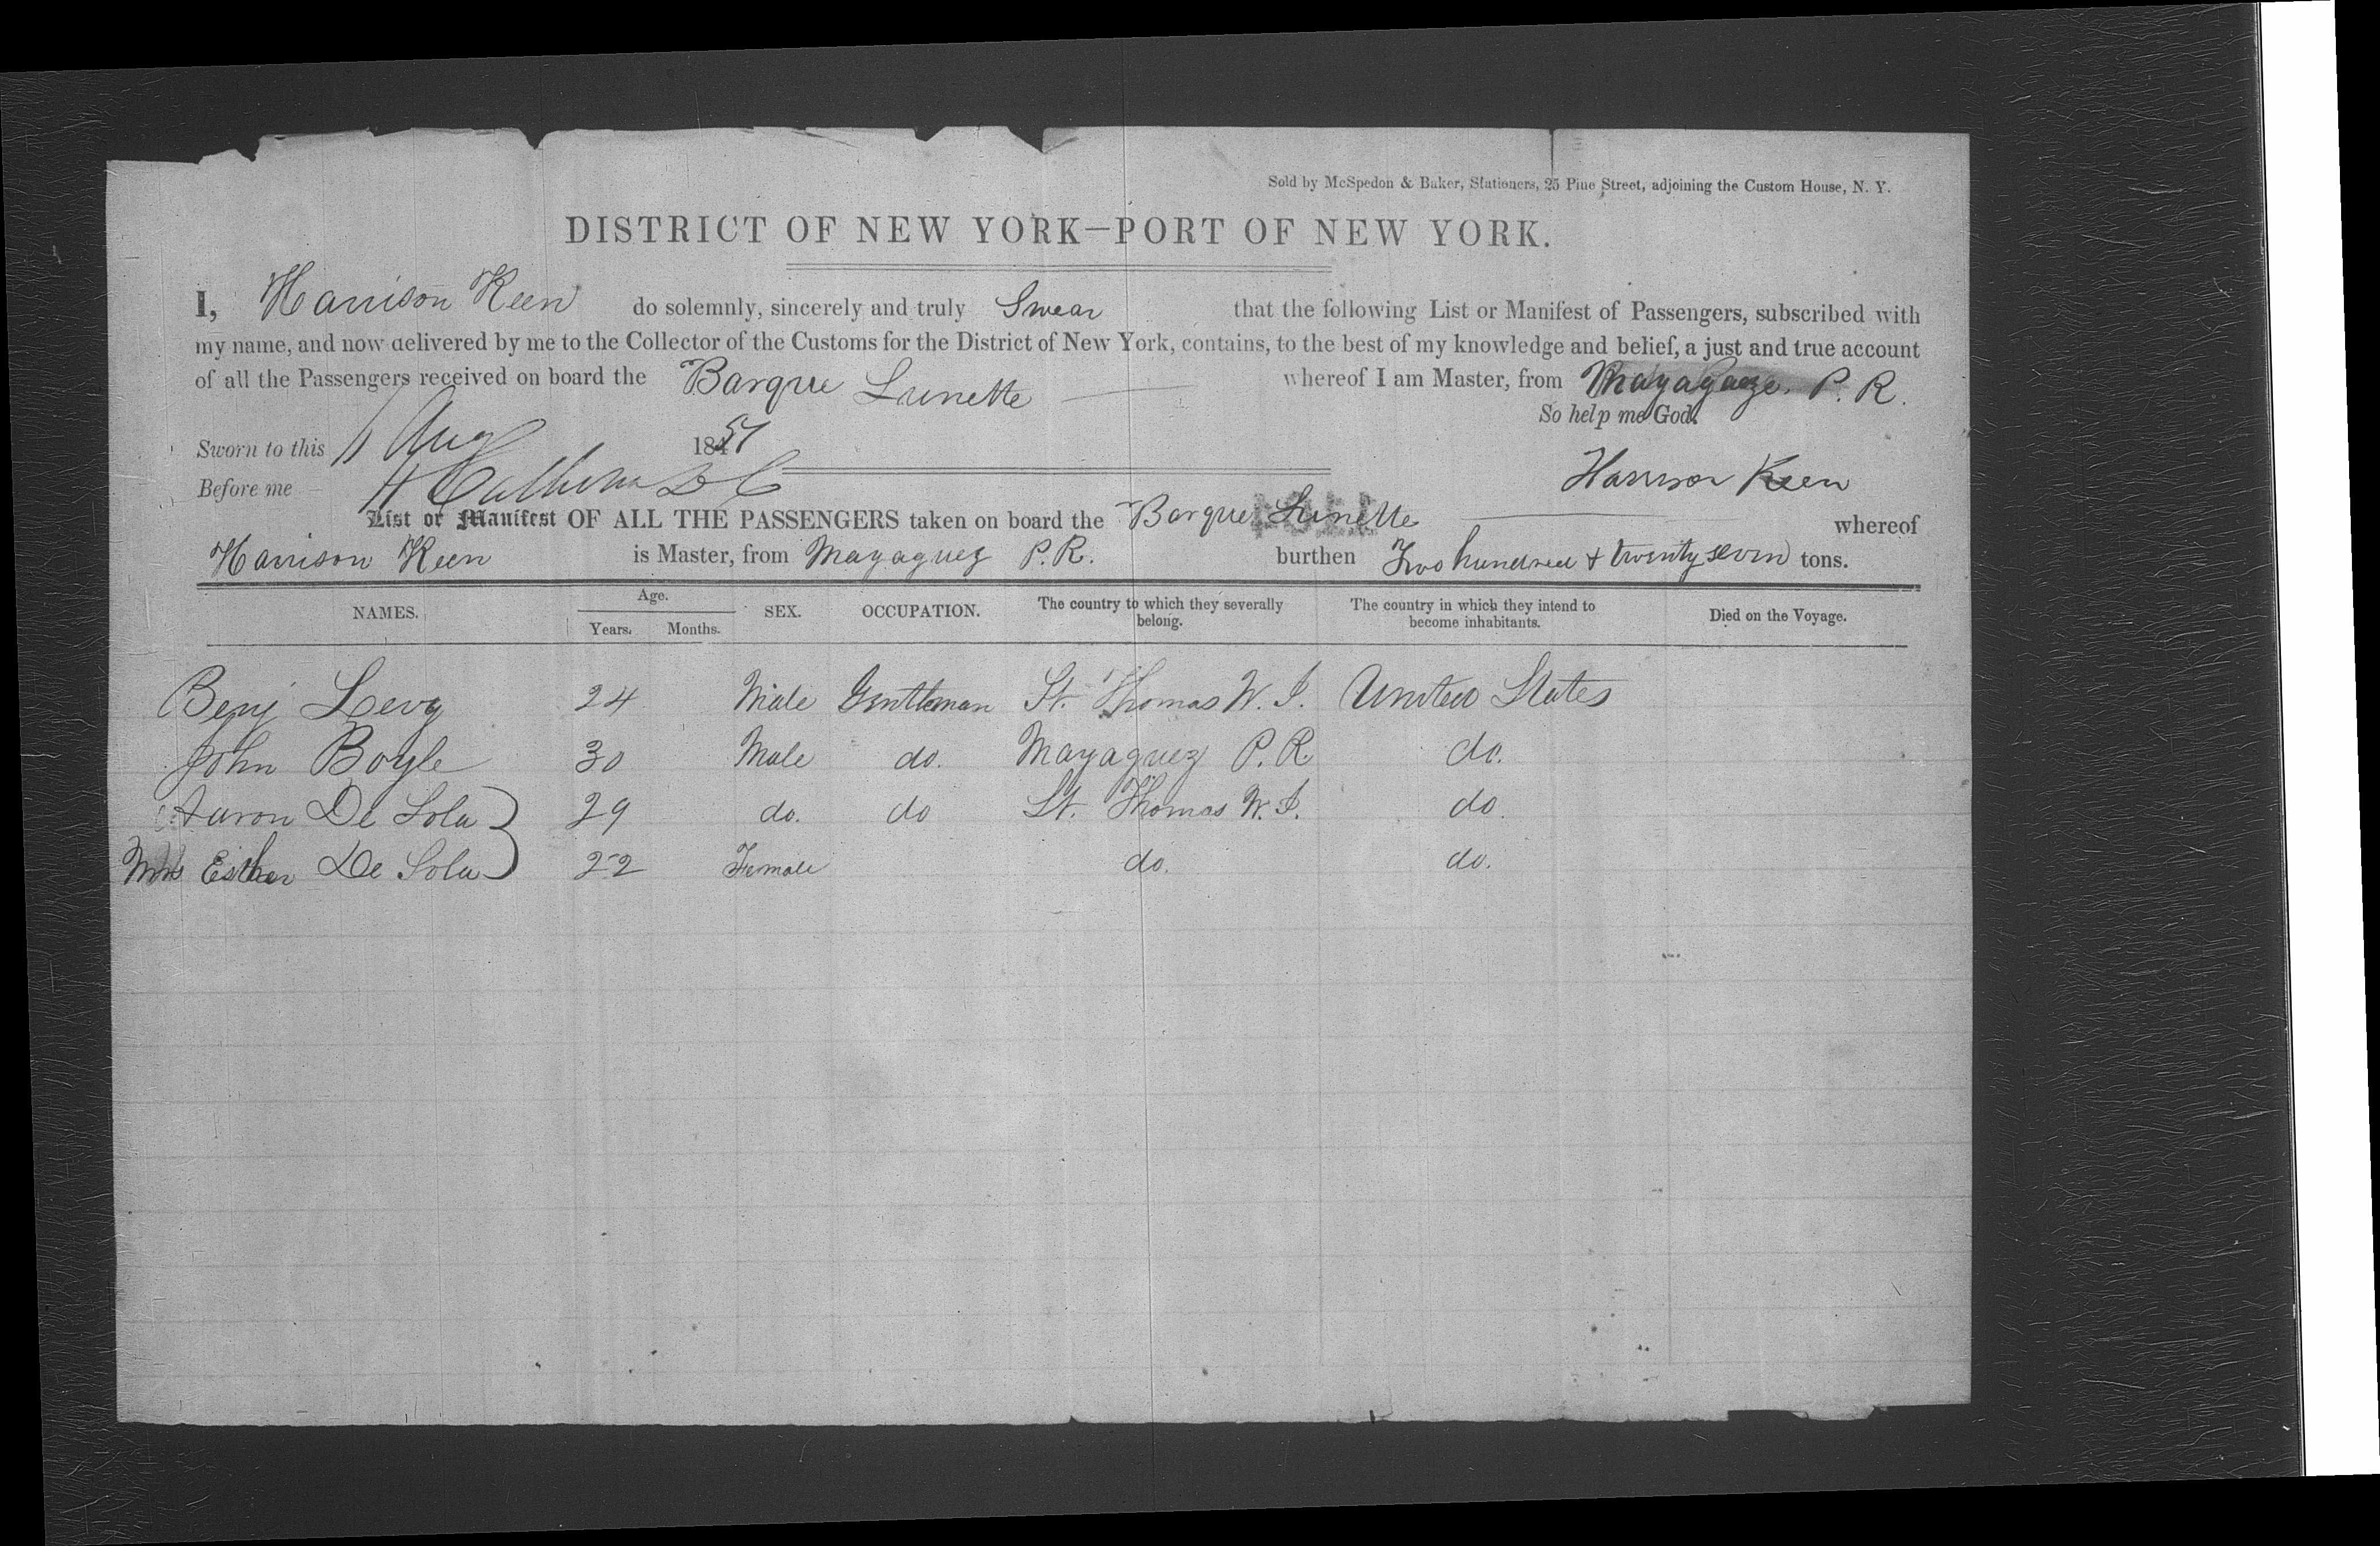 Sold by McSpedon & Baker, Stationers, 25 Pine Street, adjoining the Custom House, N. Y.
DISTRICT OF NEW YORK—PORT OF NEW YORK.
I, Harrison Keen do solemnly, sincerely and truly Swear that the following List or Manifest of Passengers, subscribed with
my name, and now delivered by me to the Collector of the Customs for the District of New York, contains, to the best of my knowledge and belief, a just and true account
of all the Passengers received on board the Barque Lunette whereof I am Master, from Mayagueze, P. R.
So help me God.
Sworn to this 11 Aug 1851
Before me Harrison Keen
List or Manifest OF ALL THE PASSENGERS taken on board the Barque Lunette whereof
Harrison Keen is Master, from Mayaguez P. R. burthen Two hundred & twenty seven tons.
NAMES. Age. Years. Months. SEX. OCCUPATION. The country to which they severally belong. The country in which they intend to become inhabitants. Died on the Voyage.
Benj Levy 24 Male Gentleman St. Thomas W. I. United States
John Boyle 30 Male do. Mayaguez P. R. do.
Aaron De Sola 29 do. do St. Thomas W. I. do.
Esther De Sola 22 Female do. do.